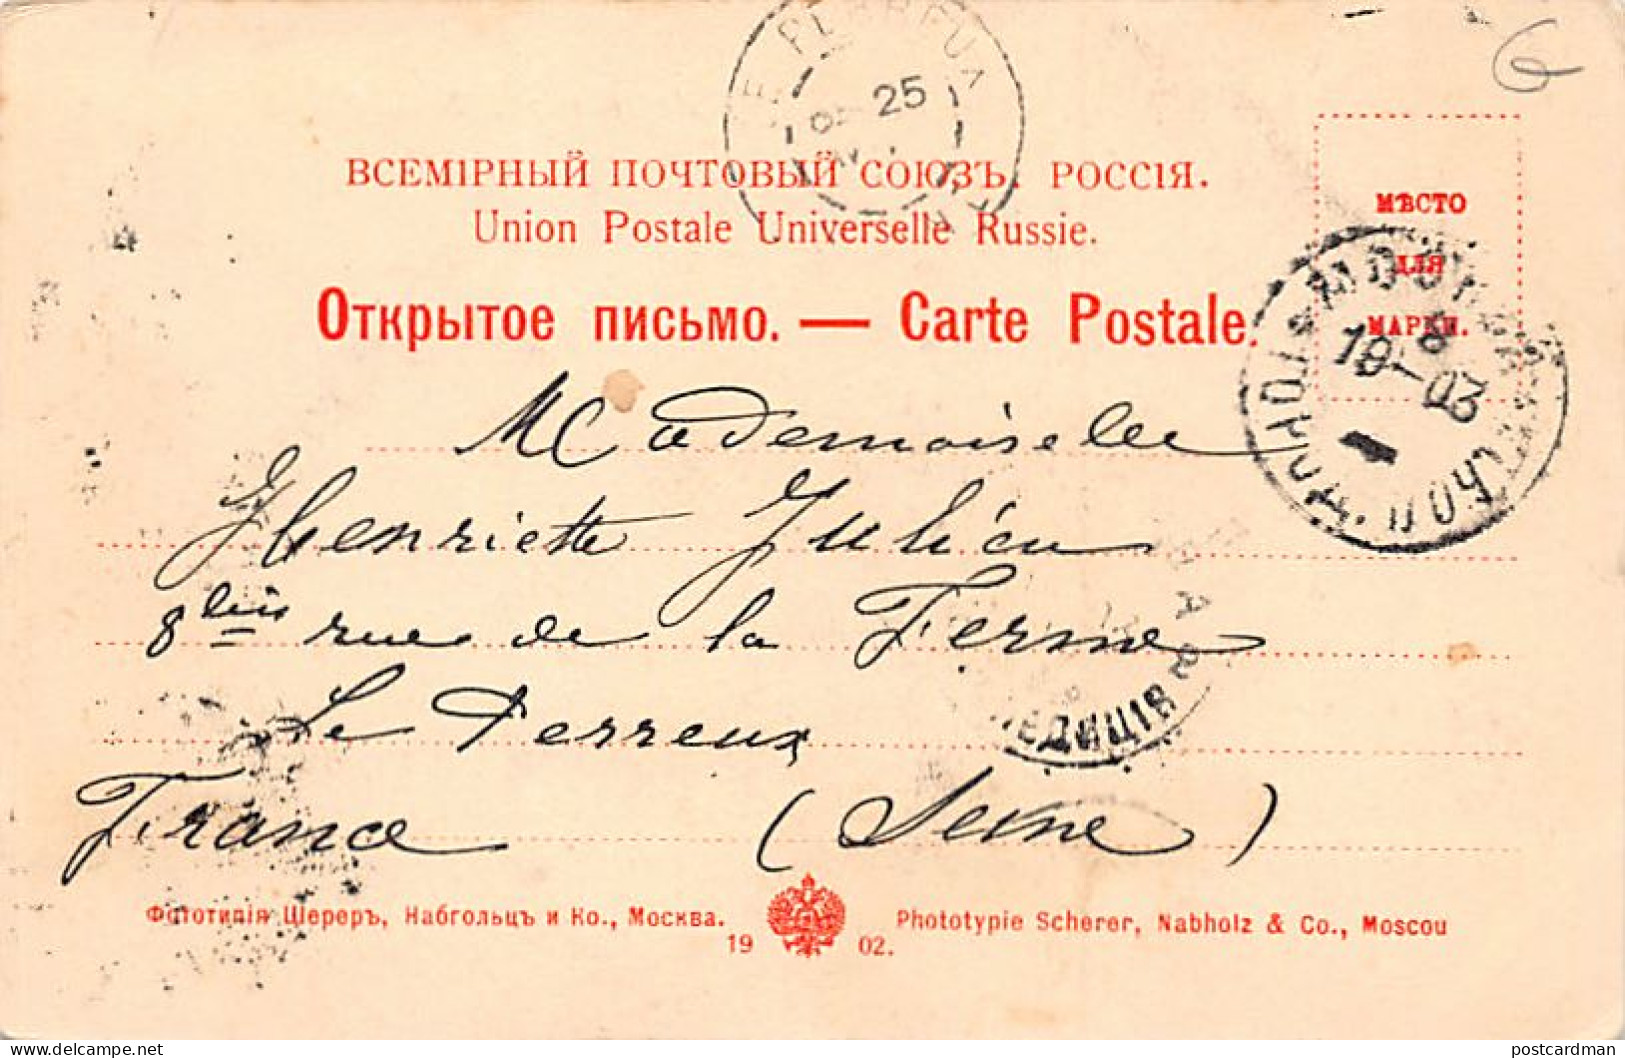 6
25
ВСЕМІРНЫЙ ПОЧТОВЫЙ СОЮЗЪ. РОССІЯ.
Union Postale Universelle Russie.
МѢСТО
ДЛЯ
МАРКИ.
Открытое письмо. — Carte Postale.
8
19-03
Mademoiselle
Henriette Julien
8 bis rue de la Ferme
Le Perreux
France (Seine)
Фототипія Шереръ, Набгольцъ и Ко., Москва.
1902.
Phototypie Scherer, Nabholz & Co., Moscou
delcampe.net
postcardman